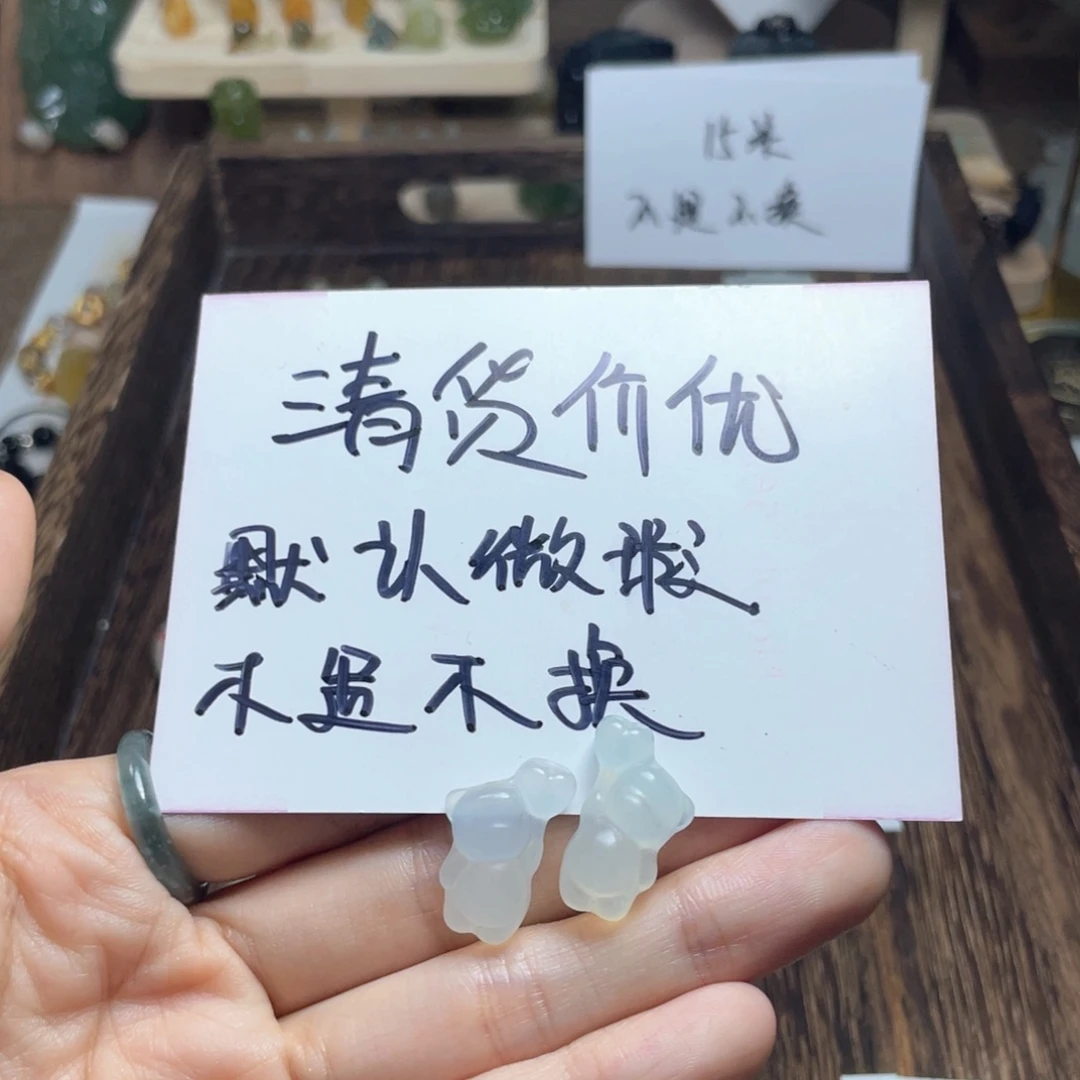 不退不换
清货价优
默认微瑕
不退不换